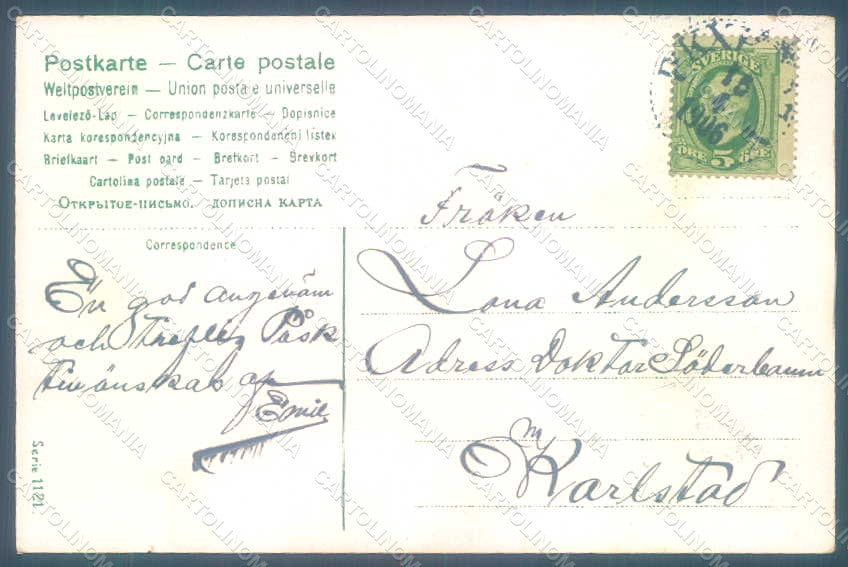 Postkarte — Carte postale
Weltpostverein — Union postale universelle
Levelező-Lap — Correspondenzkarte — Dopisnice
Karta korespondencyjna — Korespondenční lístek
Briefkaart — Post card — Brefkort — Brevkort
Cartolina postale — Tarjeta postal
Открытое-письмо. дописна карта
Correspondence
En god angenäm
och treflig Påsk
tillönskas af
Emil
Serie 1121.
SVERIGE
1906
ÖRE 5 ÖRE
Fröken
Lona Andersson
Adress Doktor Söderbaum
Karlstad
CARTOLINOMANIA